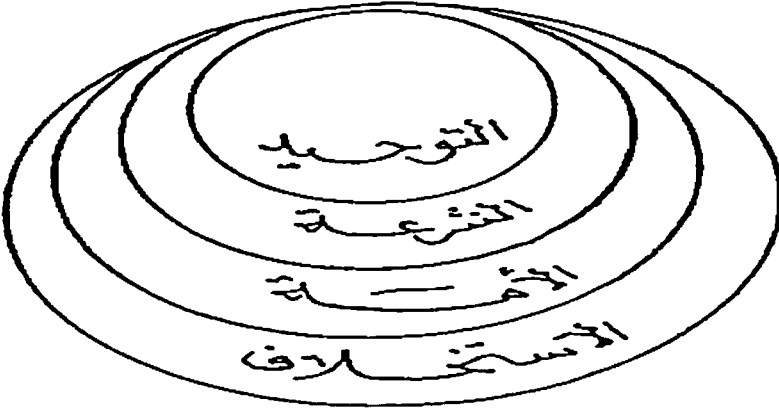 التوحيد
الشرعة
الأمة
الاستخلاف